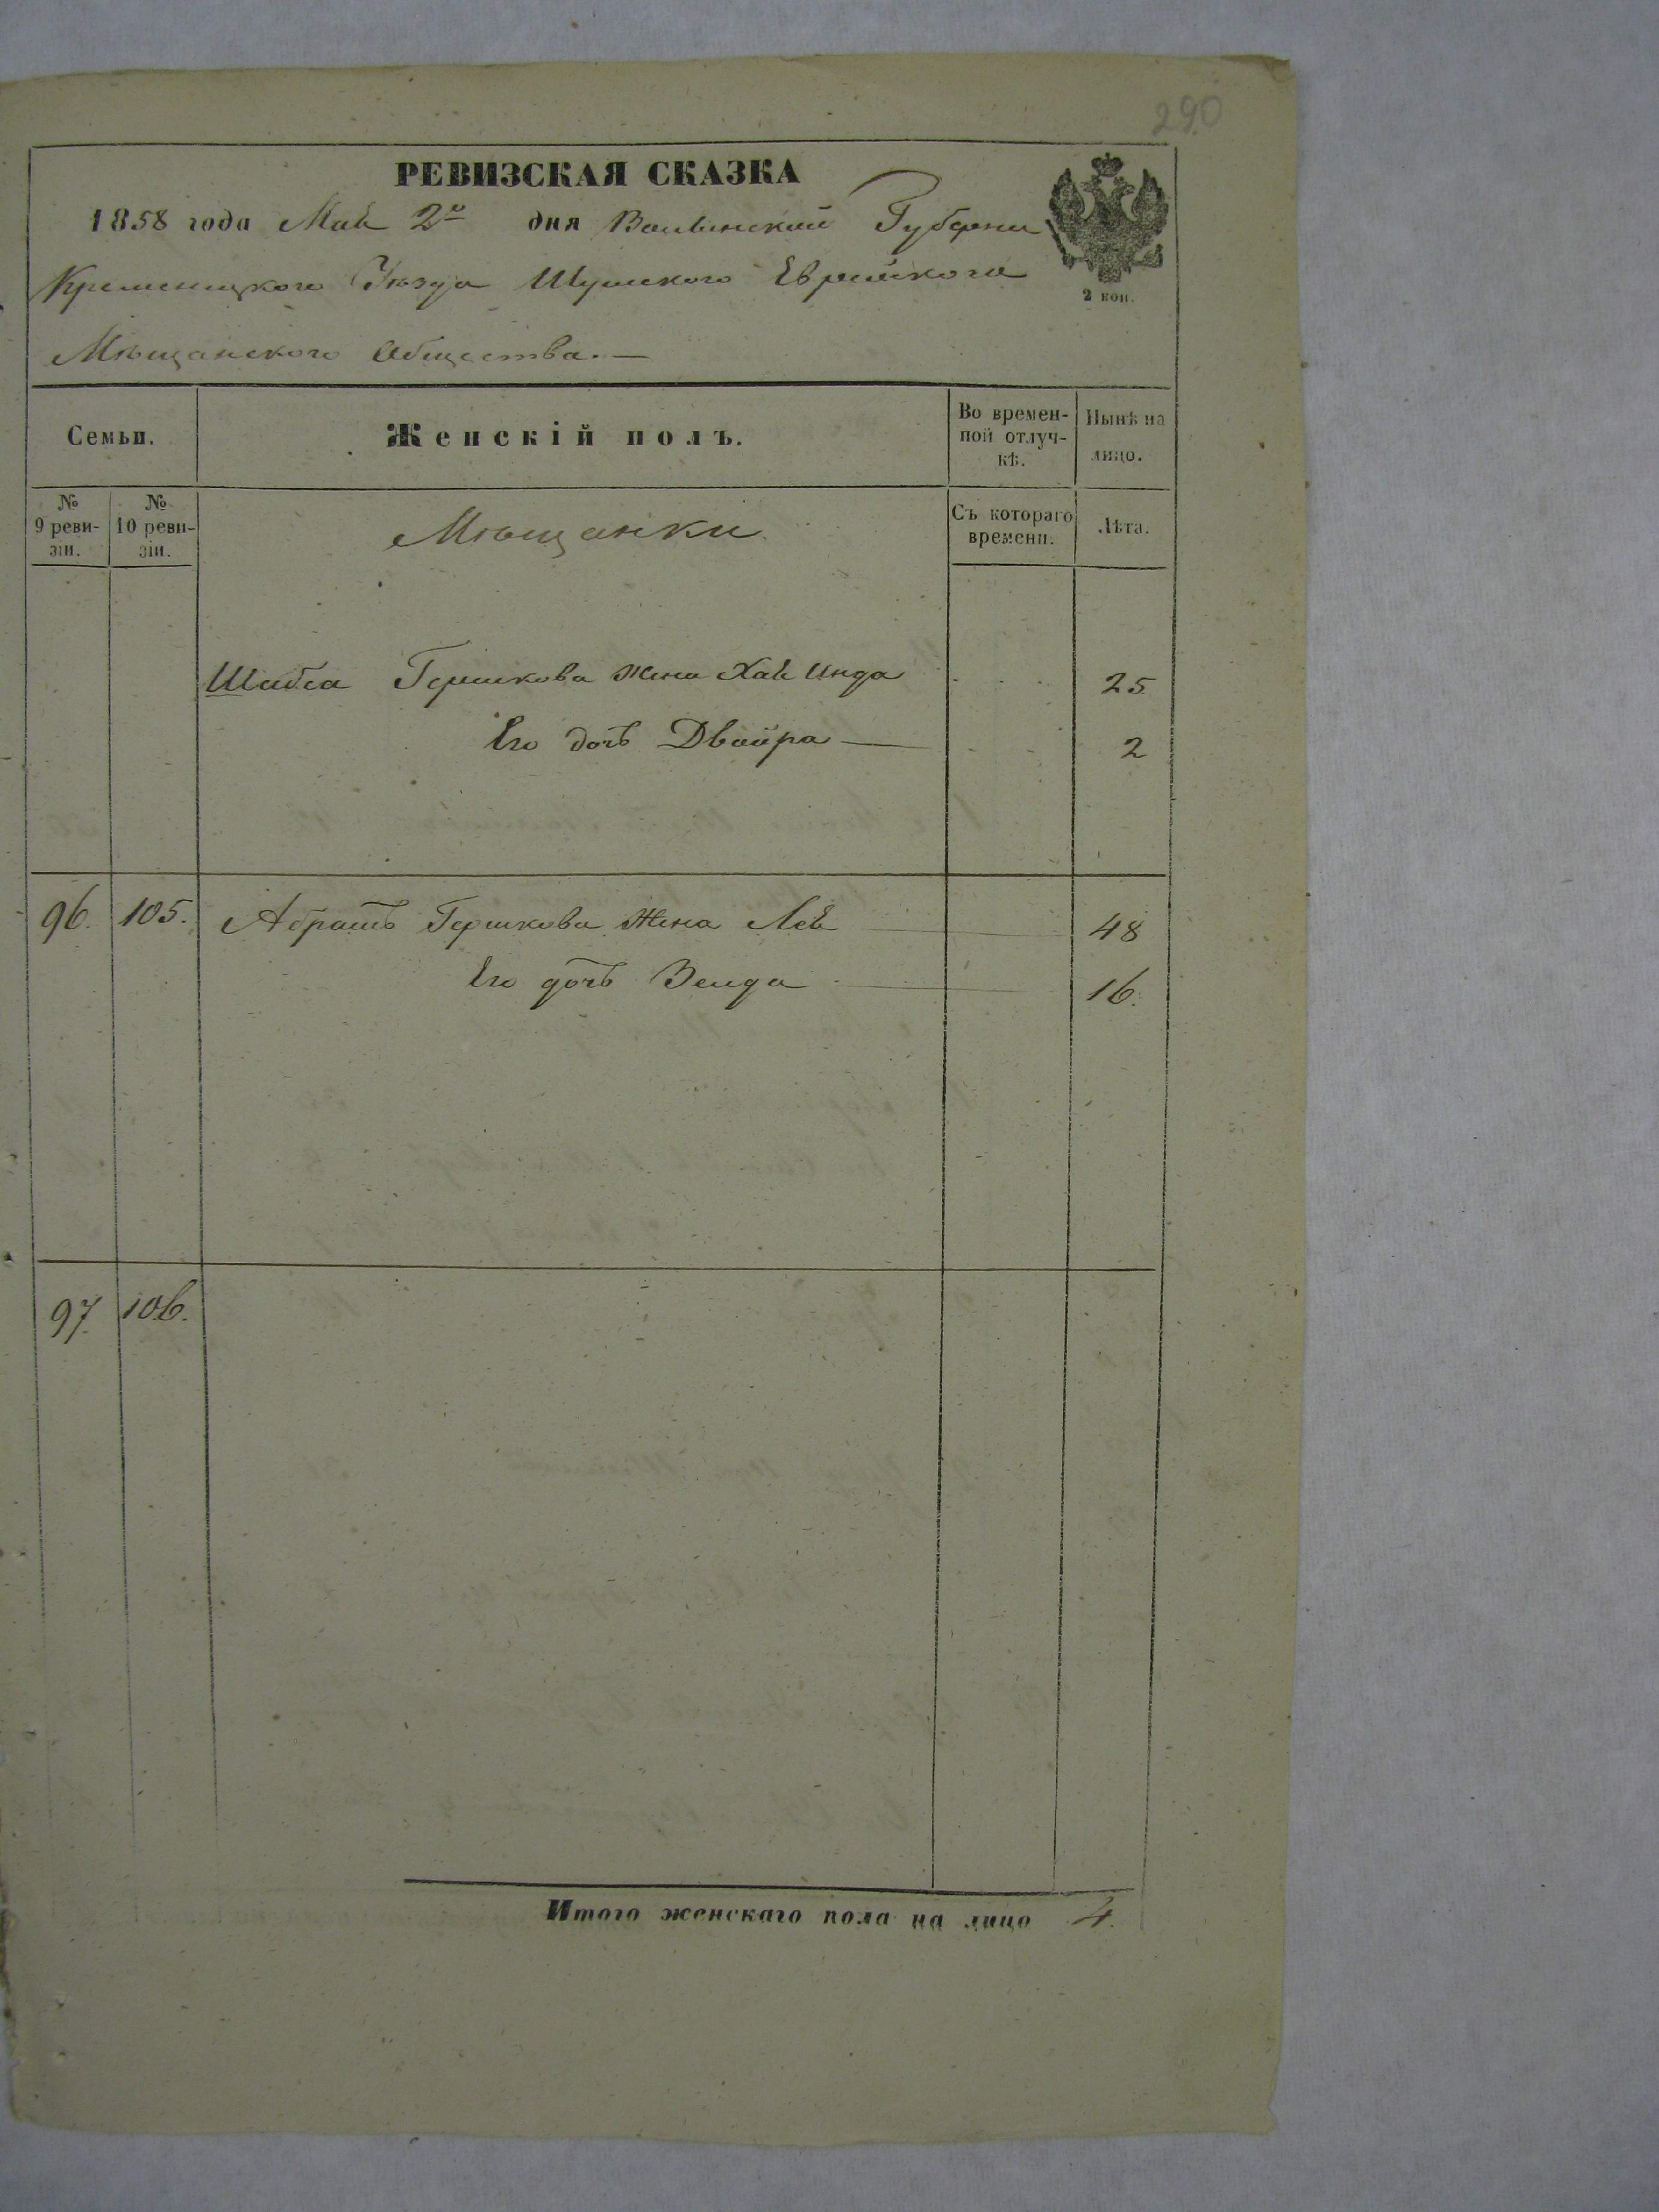 290
РЕВИЗСКАЯ СКАЗКА
1858 года Мая 2го дня Волынской Губернии
Кременецкого Уѣзда Шумского Еврейского
2 коп.
Мѣщанского Общества. —
Семьи.
Женскій полъ.
Во времен-
ной отлуч-
кѣ.
Нынѣ на
лицо.
№
9 реви-
зіи.
№
10 реви-
зіи.
Мѣщанки
Съ котораго
времени.
Лѣта.
Шабса Гершкова жена Хая Инда 25
Его дочь Двойра — 2
96. 105. Абрамъ Гершкова Жена Лея 48
Его дочь Зелда 16.
97. 106.
Итого женскаго пола на лицо 4.